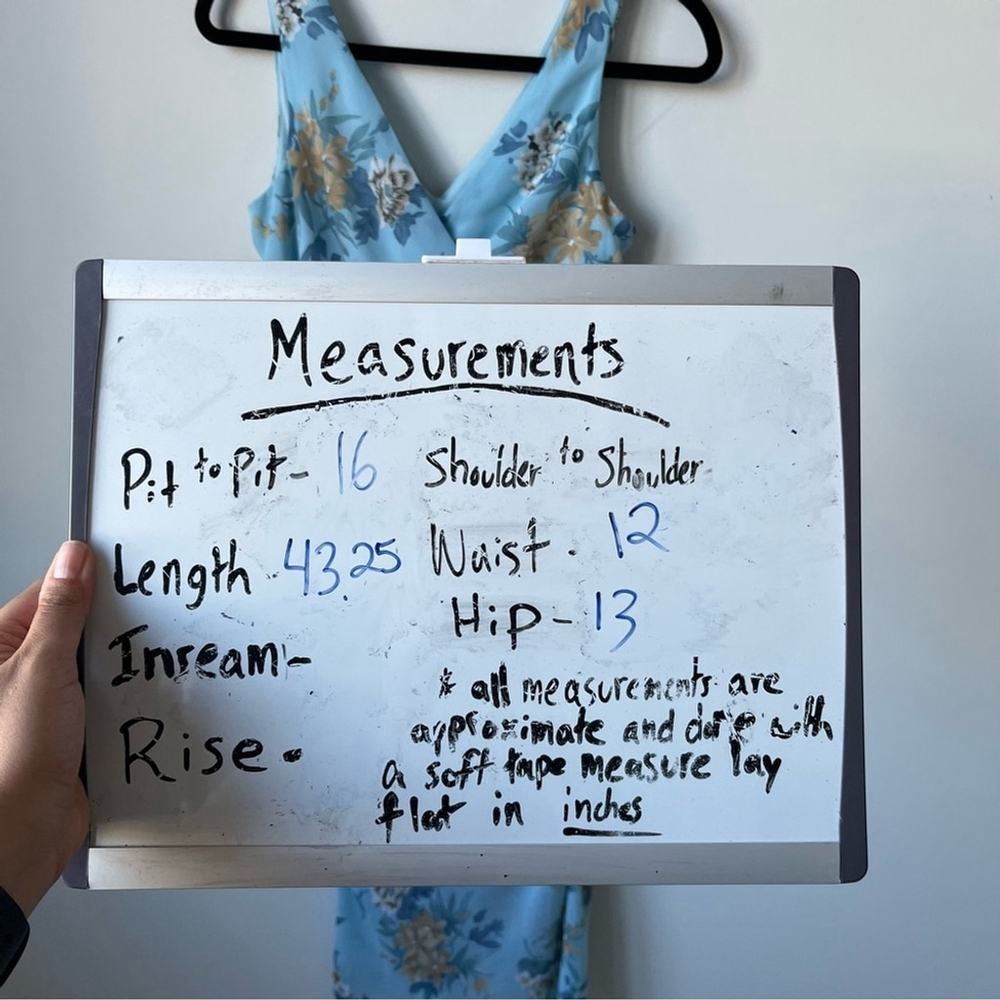 Measurements
Pit to Pit - 16
Shoulder to Shoulder
Length - 43.25
Waist - 12
Hip - 13
Inseam -
Rise -
* all measurements are
approximate and done with
a soft tape measure lay
flat in inches